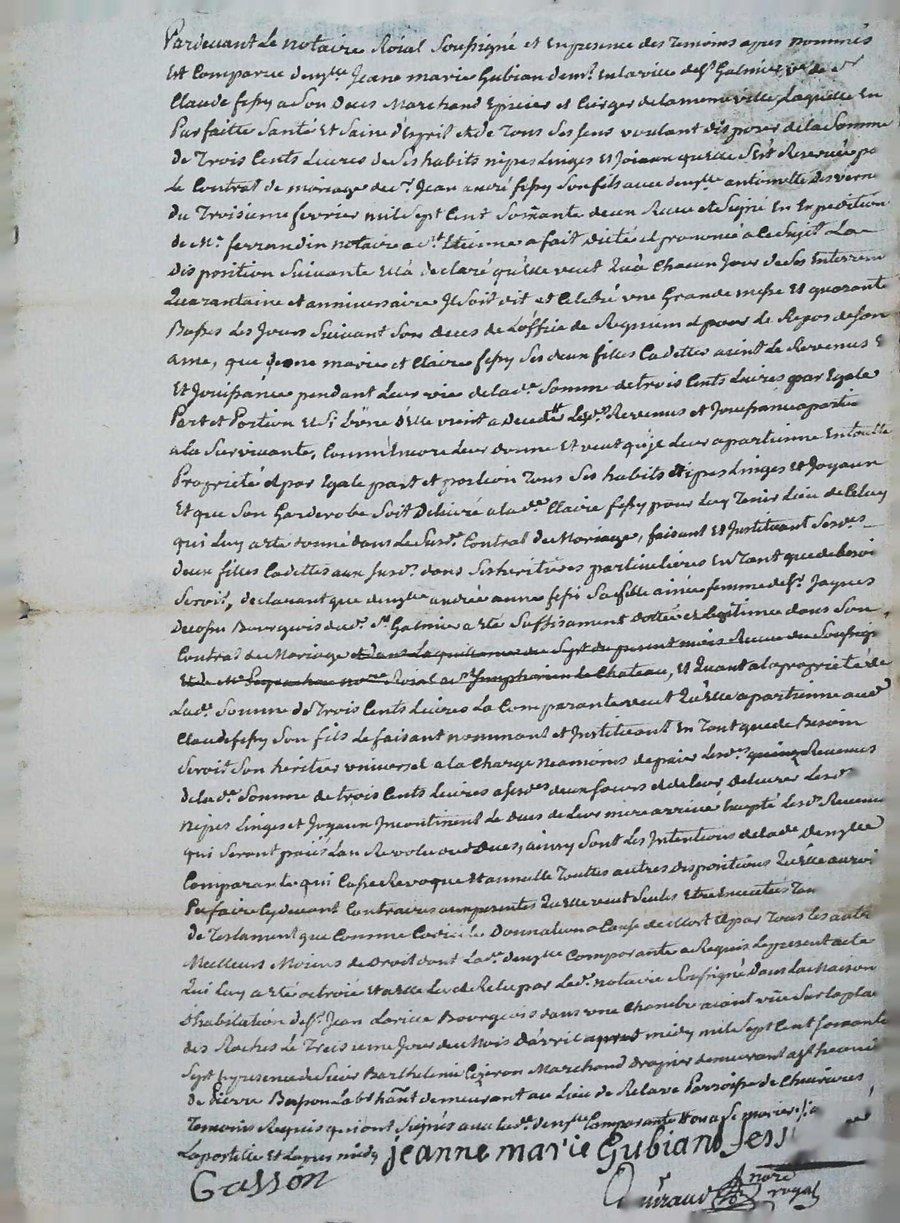 Pardevant Le notaire Roial Soussigné et En presence des Temoins apres nommés
Est Comparue demlle Jeane marie Gubian demt En la ville de st Galmier ve de sr
Claude fessy a Son Deces Marchand Epicier et Cirger de la meme ville, Laquelle En
Parfaitte Santé Et Saine d'Esprit et de Tous Ses sens voulant disposer de la Somme
de Trois Cents Livres de Ses habits nipes Linges Et Joiaux quelle s'est Reservée pa
Le Contrat de mariage de sr Jean andré fessy Son fils avec demlle antoinette
du Troisieme fevrier mil Sept Cent Soixante deux Receu et Signé En Expedition
de Me ferrandin notaire a st Etienne a fait dicté et prononcé a ce Sujet La
Disposition Suivante Et a declaré qu'elle veut Qu'a Chacun Jour de Ses Enterrem
Quarantaine et anniversaire Il Soit dit et Celebré une Grande messe Et quarante
Basses Les Jours Suivant Son deces de L'office de Requiem et pour Le Repos de Son
ame, que Jeane marie et Claire fessy Ses deux filles Cadettes aient Le Revenus E
Et Jouissance pendant Leur vie de la de Somme de trois Cents Livres par Egale
Part et Portion Et Si L'une d'Elle vient a Deceder Les ds Revenus et Jouissance apartie
a la Survivante, Comm'Encore Leur donne Et veut qu'il Leur apartienne En toutte
Propriété et par Egale part et portion Tous Ses habits nipes Linges Et Joyaux
Et que Son Garderobe Soit Delivré a la de Claire fessy pour Luy Tenir Lieu de Celuy
qui Luy a ete donné dans Le Susd. Contrat de Mariage, faisant Et Instituant Ses ds
deux filles Cadettes aux Susd. dons Ses heritieres particulieres En Tant que de besoi
Seroit, declarant que demlle andrée anne fessi Sa fille ainée femme de sr Jaques
Bourgeois du d. st Galmier a ete Suffisament dottée et Legitimée dans Son
Contrat de Mariage et dans La quittance du Sept du present mois Receue du Soussigné
Et de Me nore Roial a st Simphorien le Chateau, Et Quant a la propriété de
La de Somme de Trois Cents Livres La Comparante veut Qu'elle apartienne aud
Claude fessy Son fils Le faisant nommant et Instituant En Tant que de Besoin
Seroit Son heritier universel a la Charge neanmoins de paier Les ds Revenus
de la de Somme de trois Cents Livres a Ses des deux soeurs et de Leur Delivrer Les ds
nipes Linges et Joyaux Incontinent Le deces de Leur mere arrivé Excepté Les ds Revenus
qui Seront paiés L'an Revolu du d Deces, ainsy Sont Les Intentions de la de demlle
Comparante qui Casse Revoque Et annulle Touttes autres dispositions Qu'elle auroi
Pu faire Cy devant Contraires aux presentes Qu'elle veut Seules Etre Executées Tan
de Testament que Comme Codicile Donnation a Cause de Mort Et par Tous Les autre
Meilleurs Moiens de Droit dont La de demlle Comparante a Requis Le present acte
Qui Luy a ete octroié Et a Elle Lu et Relu par Le d. notaire Soussigné Dans La Maison
d'habitation de sr Jean Bourgeois dans une Chambre aiant vüe Sur La place
des Roches Le Treisieme Jour du Mois D'avril apres midy mil Sept Cent Soixante
Sept En presence de Sieur Barthelemi Marchand drapier demeurant a st heand
de Pierre Basson Labt hant demeurant au Lieu de Relave Parroisse de Chevrieres
Temoins Requis qui ont Signés avec La de demlle Comparante
L'apostille Et L'apres midy jeanne marie Gubiand fess
Gassón
Quiraud nore royal